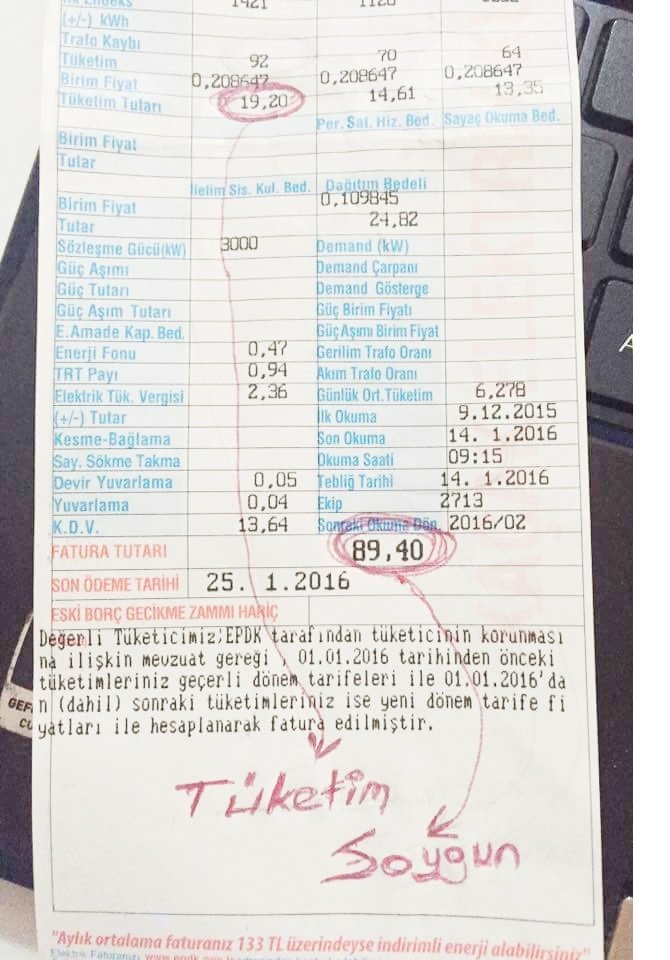 1421 1126
(+/-) kWh
Trafo Kaybı
Tüketim 92 70 64
Birim Fiyat 0,208647 0,208647 0,208647
Tüketim Tutarı 19,20 14,61 13,35
Per. Sat. Hiz. Bed. Sayaç Okuma Bed.
Birim Fiyat
Tutar
İletim Sis. Kul. Bed. Dağıtım Bedeli
Birim Fiyat 0,109845
Tutar 24,82
Sözleşme Gücü(kW) 3000 Demand (kW)
Güç Aşımı Demand Çarpanı
Güç Tutarı Demand Gösterge
Güç Aşım Tutarı Güç Birim Fiyatı
E.Amade Kap. Bed. Güç Aşımı Birim Fiyat
Enerji Fonu 0,47 Gerilim Trafo Oranı
TRT Payı 0,94 Akım Trafo Oranı
Elektrik Tük. Vergisi 2,36 Günlük Ort.Tüketim 6,278
(+/-) Tutar İlk Okuma 9.12.2015
Kesme-Bağlama Son Okuma 14. 1.2016
Say. Sökme Takma Okuma Saati 09:15
Devir Yuvarlama 0,05 Tebliğ Tarihi 14. 1.2016
Yuvarlama 0,04 Ekip 2713
K.D.V. 13,64 Sonraki Okuma Dön. 2016/02
FATURA TUTARI 89,40
SON ÖDEME TARİHİ 25. 1.2016
ESKİ BORÇ GECİKME ZAMMI HARİÇ
Değerli Tüketicimiz;EPDK tarafından tüketicinin korunması
na ilişkin mevzuat gereği , 01.01.2016 tarihinden önceki
tüketimleriniz geçerli dönem tarifeleri ile 01.01.2016'da
n (dahil) sonraki tüketimleriniz ise yeni dönem tarife fi
yatları ile hesaplanarak fatura edilmiştir.
Tüketim
Soygun
"Aylık ortalama faturanız 133 TL üzerindeyse indirimli enerji alabilirsiniz"